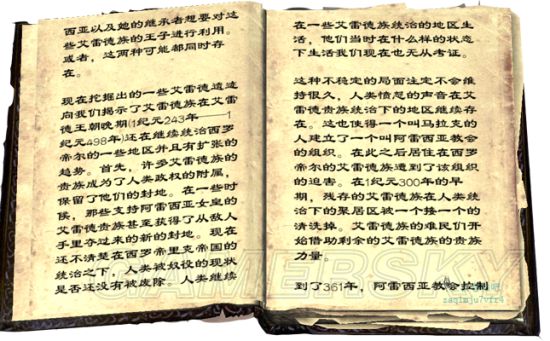 西亚以及她的继承者想要对这
些艾雷德族的王子进行利用。
或者，这两种可能都同时存
在。
现在挖掘出的一些艾雷德遗迹
向我们揭示了艾雷德族在艾雷
德王朝晚期(1纪元243年——1
纪元498年)还在继续统治西罗
帝尔的一些地区并且有扩张的
趋势。首先，许多艾雷德族的
贵族成为了人类政权的附属，
保留了他们的封地。在一些时
候，那些支持阿雷西亚女皇的
艾雷德贵族甚至获得了从敌人
手里夺过来的新的封地。现在
还不清楚在西罗帝里克帝国的
统治之下，人类被奴役的现状
是否还没有被废除。人类继续
在一些艾雷德族统治的地区生
活，他们当时在什么样的状态
下生活我们现在也无从考证。
这种不稳定的局面注定不会维
持很久，人类愤怒的声音在艾
雷德贵族统治下的地区继续存
在。这也使得一个叫马拉克的
人建立了一个叫阿雷西亚教会
的组织。在此之后居住在西罗
帝尔的艾雷德族遭到了该组织
的迫害。在1纪元300年的早
期，残存的艾雷德族在人类统
治下的聚居区被一个接一个的
清洗掉。艾雷德族的难民们开
始借助剩余的艾雷德族的贵族
力量。
到了361年，阿雷西亚教会控制
GAMERSKY
zaqimju7vfr4